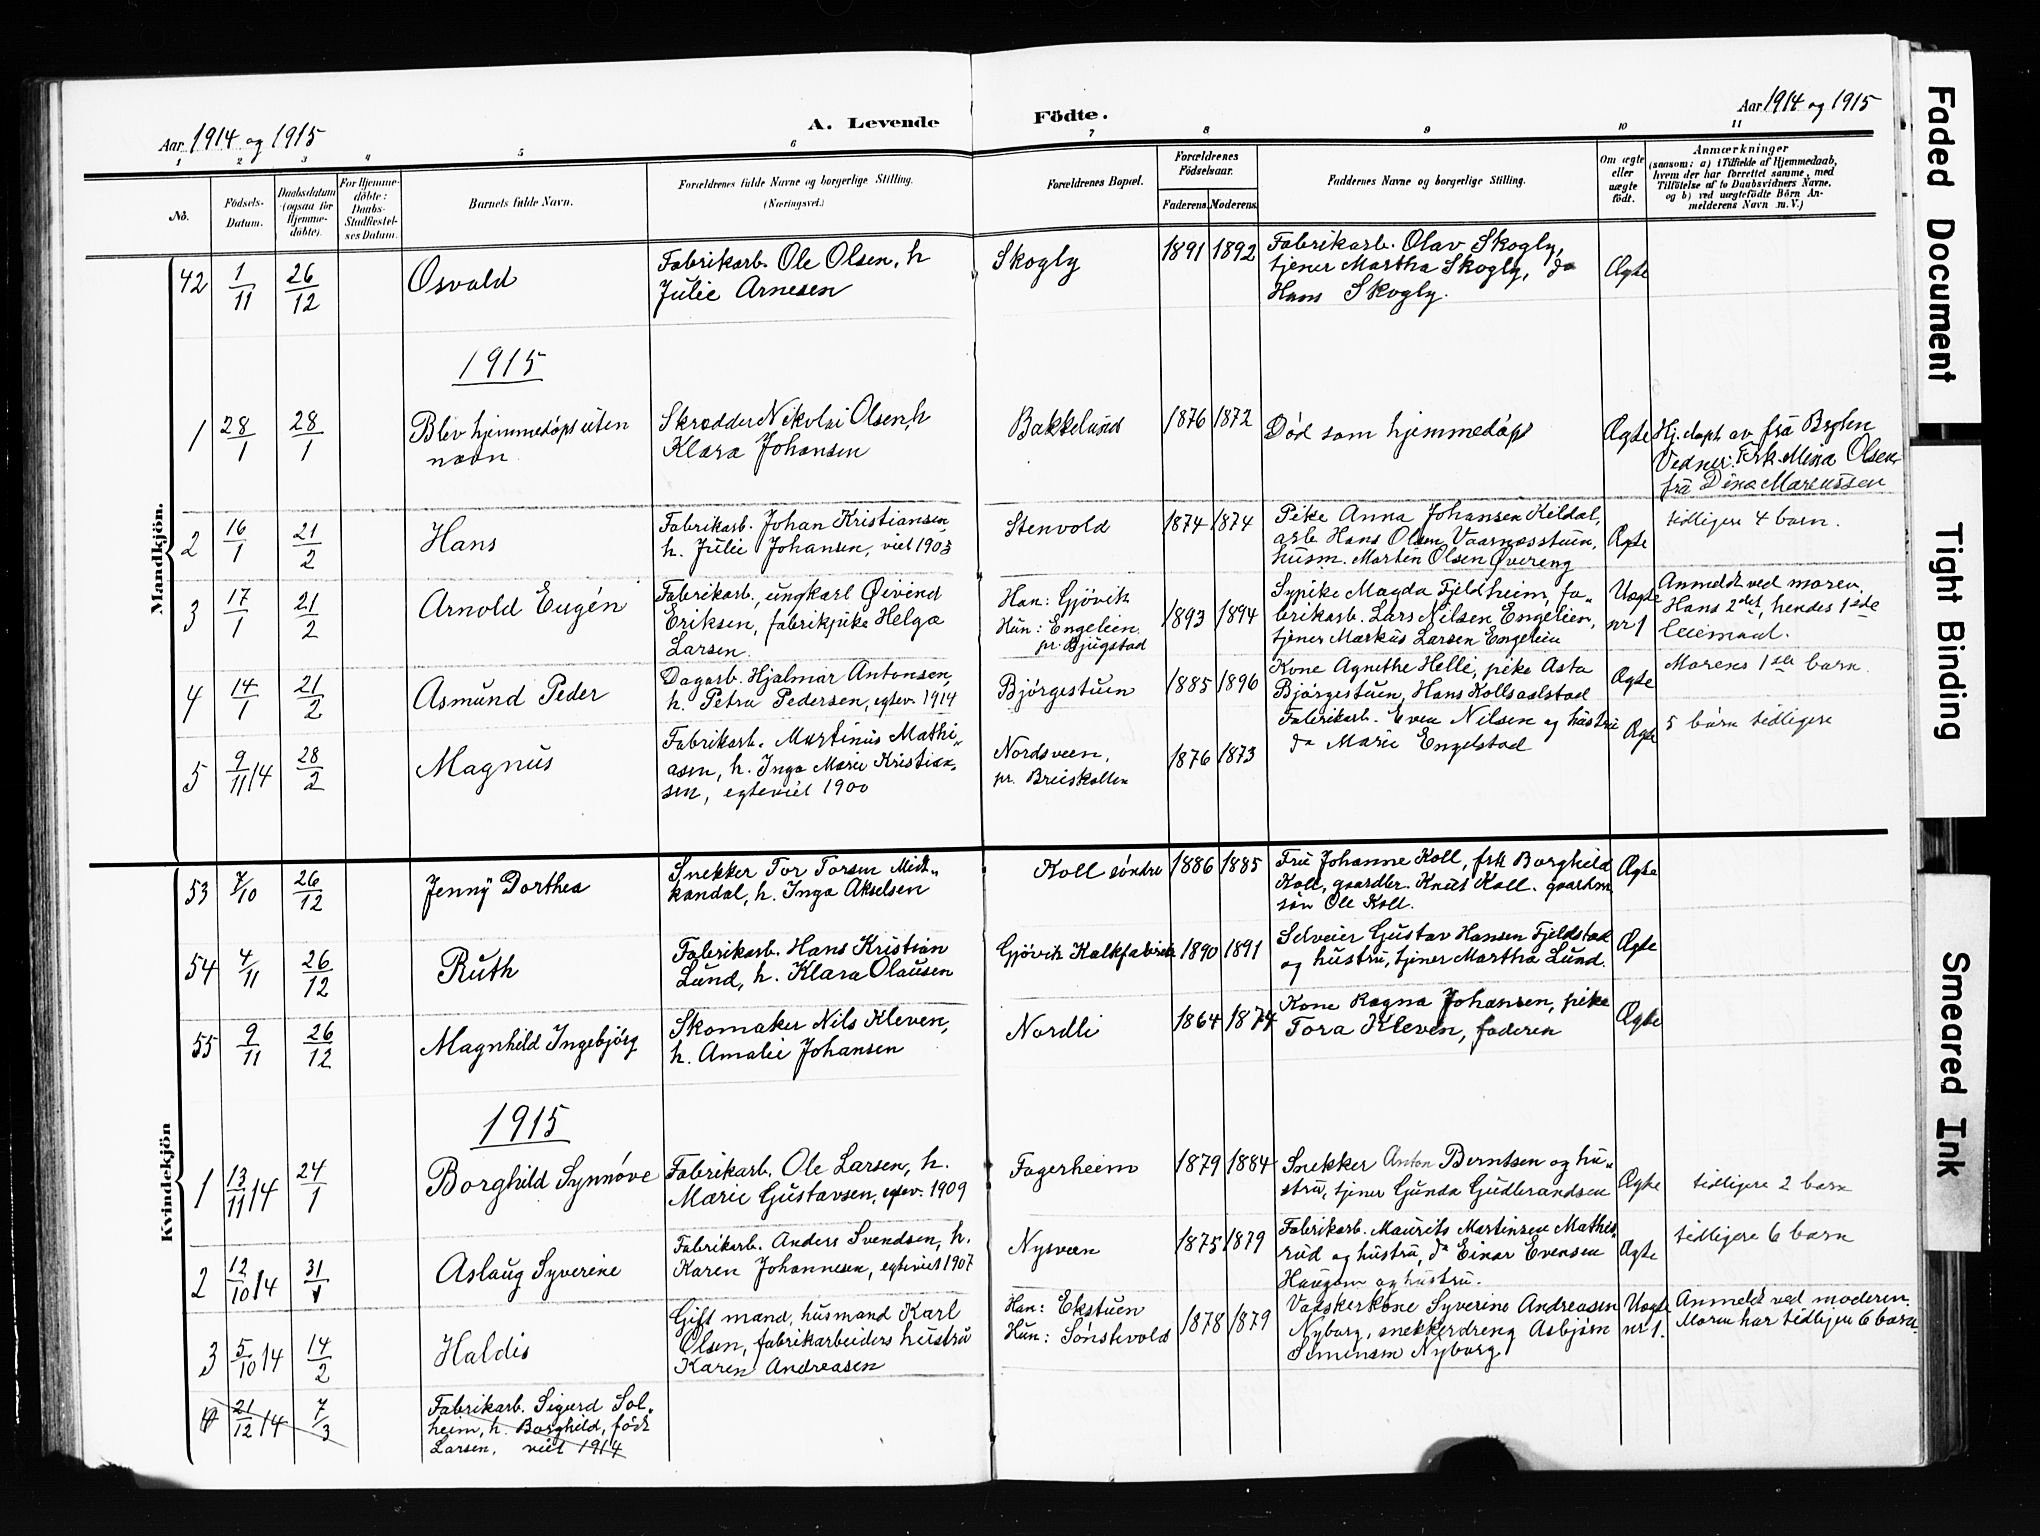 Aar 1914 og 1915
A. Levende Födte.
Aar 1914 og 1915
1 2 3 4 5 6 7 8 9 10 11
No.
Födsels-Datum.
Daabsdatum (ogsaa for Hjemme-döbte).
For Hjemme-döbte: Daabs-Stadfæstel-ses Datum.
Barnets fulde Navn.
Forældrenes fulde Navne og borgerlige Stilling. (Næringsvei.)
Forældrenes Bopæl.
Forældrenes Födselsaar.
Faderens. Moderens.
Faddernes Navne og borgerlige Stilling.
Om ægte eller uægte födt.
Anmærkninger
(saasom: a) i Tilfælde af Hjemmedaab,
hvem der har forrettet samme, med
Tilföielse af to Daabsvidners Navne.
og b) ved uægtefödte Börn An-
melderens Navn m. V.)
Mandkjön.
42 1/11 26/12 Osvald
Fabrikarb. Ole Olsen, h
Julie Arnesen
Skogly 1891 1892
Fabrikarb. Olav Skogly,
tjener Martha Skogly, do
Hans Skogly.
Ægte
1915
1 28/1 28/1 Blev hjemmedøpt uten
navn
Skrædder Nikolai Olsen, h
Klara Johansen
Bakkelund 1876 1872
Død som hjemmedøpt
Ægte
Hj.døpt av fru Bryhn
Vidner: Frk. Mina Olsen
fru Dina Marcussen
2 16/1 21/2 Hans
Fabrikarb. Johan Kristiansen,
h. Julie Johansen, viet 1903
Stenvold 1874 1874
Pike Anna Johansen Kildal,
arb. Hans Olsen Vaarnæsstuen,
husm. Martin Olsen Øvereng
Ægte
tidligere 4 barn.
3 17/1 21/2 Arnold Eugén
Fabrikarb., ungkarl Øivind
Eriksen, fabrikpike Helga
Larsen.
Han: Gjövik
Hun: Engelien
pr. Bjugstad
1893 1894
Sypike Magda Fjeldheim, fa-
brikarb. Lars Nilsen Engelien,
tjener Markus Larsen Engelien
Uægte
nr 1
Anmeldt ved moren
Hans 2det, hendes 1ste
leiermaal.
4 14/1 21/2 Asmund Peder
Dagarb. Hjalmar Antonsen,
h. Petra Pedersen, egtev. 1914
Bjørgestuen 1885 1896
Kone Agnethe Helli, pike Asta
Bjørgestuen, Hans Kollsaalstad
Ægte
Morenes 1ste barn
5 9/11 14 28/2 Magnus
Fabrikarb. Martinus Mathi-
asen, h. Inga Marie Kristian-
sen, egteviet 1900
Nordsveen,
pr. Breiskallen
1876 1873
Fabrikarb. Even Nilsen og hustru
do Marie Engelstad
Ægte
5 børn tidligere
Kvindekjön
53 7/10 26/12 Jenny Dorthea
Snekker Tor Torsen Midt-
kandal, h. Inga Akselsen
Koll søndre 1886 1885
Fru Johanne Koll, frk Borghild
Koll, gaardbr. Knut Koll. gaardm
søn Ole Koll.
Ægte
54 4/11 26/12 Ruth
Fabrikarb. Hans Kristian
Lund, h. Klara Olausen
Gjövik Kalkfabrik 1890 1891
Selveier Gustav Hansen Fjeldstad
og hustru, tjener Martha Lund.
Ægte
55 9/11 26/12 Magnhild Ingebjörg
Skomaker Nils Kleven,
h. Amalie Johansen
Nordli 1864 1874
Kone Ragna Johansen, pike
Tora Kleven, faderen
Ægte
1915
1 13/11 14 24/1 Borghild Synnöve
Fabrikarb. Ole Larsen, h.
Marie Gustavsen, egtev. 1909
Fagerheim 1879 1884
Snekker Anton Berntsen og hu-
stru, tjener Gunda Gudbrandsen
Ægte
tidligere 2 barn
2 12/10 14 31/1 Aslaug Syverine
Fabrikarb. Anders Svendsen, h.
Karen Johannesen, egteviet 1907
Nysveen 1875 1879
Fabrikarb. Maurits Martinsen Mathis-
rud og hustru, do Einar Evensen
Haugom og hustru.
Ægte
tidligere 6 barn
3 5/10 14 14/2 Haldis
Gift mand, husmand Karl
Olsen, fabrikarbeiders hustru
Karen Andreasen
Han: Ekstuen
Hun: Sønstevold
1878 1879
Vadskerkone Syverine Andreasen
Nyborg, snekkerdreng Asbjörn
Simensen Nyborg
Uægte
nr 1.
Anmeldt ved moderen.
Moren har tidligere 6 barn.
21/12 14 7/3
Fabrikarb. Sigurd Sol-
heim, h. Borghild, födt
Larsen, viet 1914
Faded Document
Tight Binding
Smeared Ink